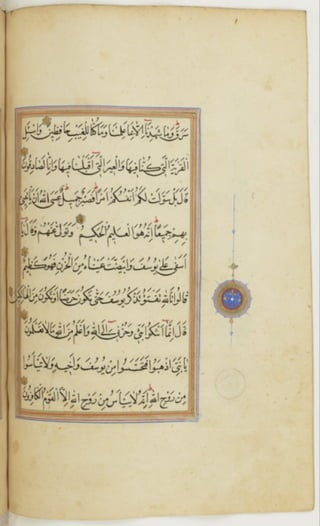 سَرَقَ وَمَا شَهِدْنَا إِلَّا بِمَا عَلِمْنَا وَمَا كُنَّا لِلْغَيْبِ حَافِظِينَ وَاسْئَلِ
الْقَرْيَةَ الَّتِي كُنَّا فِيهَا وَالْعِيرَ الَّتِي أَقْبَلْنَا فِيهَا وَإِنَّا لَصَادِقُونَ
قَالَ بَلْ سَوَّلَتْ لَكُمْ أَنْفُسُكُمْ أَمْرًا فَصَبْرٌ جَمِيلٌ عَسَى اللَّهُ أَنْ يَأْتِيَنِي
بِهِمْ جَمِيعًا إِنَّهُ هُوَ الْعَلِيمُ الْحَكِيمُ وَتَوَلَّى عَنْهُمْ وَقَالَ يَا
أَسَفَى عَلَى يُوسُفَ وَابْيَضَّتْ عَيْنَاهُ مِنَ الْحُزْنِ فَهُوَ كَظِيمٌ
قَالُوا تَاللَّهِ تَفْتَؤُا تَذْكُرُ يُوسُفَ حَتَّى تَكُونَ حَرَضًا أَوْ تَكُونَ مِنَ الْهَالِكِينَ
قَالَ إِنَّمَا أَشْكُوا بَثِّي وَحُزْنِي إِلَى اللَّهِ وَأَعْلَمُ مِنَ اللَّهِ مَا لَا تَعْلَمُونَ
يَا بَنِيَّ اذْهَبُوا فَتَحَسَّسُوا مِنْ يُوسُفَ وَأَخِيهِ وَلَا تَيْأَسُوا
مِنْ رَوْحِ اللَّهِ إِنَّهُ لَا يَيْأَسُ مِنْ رَوْحِ اللَّهِ إِلَّا الْقَوْمُ الْكَافِرُونَ